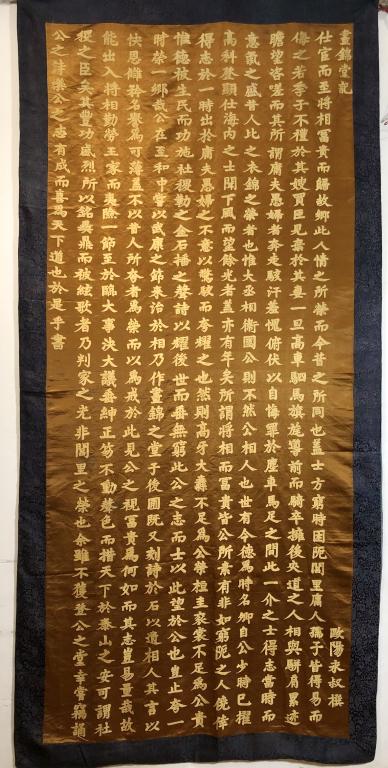 晝錦堂記
歐陽永叔撰
仕宦而至將相冨貴而歸故鄉此人情之所榮而今昔之所同也蓋士方窮時困阨閭里庸人孺子皆得易而
侮之若季子不禮於其嫂買臣見棄於其妻一旦高車駟馬旗旄導前而騎卒擁後夾道之人相與駢肩累迹
瞻望咨嗟而其所謂庸夫愚婦者奔走駭汗羞愧俯伏以自悔罪於塵車馬足之間此一介之士得志當時而
意氣之盛昔人比之衣錦之榮者也惟大丞相衛國公則不然公相人也世有令德為時名卿自公少時已擢
高科登顯仕海內之士聞下風而望餘光者蓋亦有年矣所謂將相而冨貴皆公所素有非如窮阨之人僥倖
得志於一時出於庸夫愚婦之不意以驚駭而夸耀之也然則高牙大纛不足為公榮桓圭袞裳不足為公貴
惟德被生民而功施社稷勒之金石播之聲詩以耀後世而垂無窮此公之志而士以此望於公也豈止夸一
時榮一鄉哉公在至和中嘗以武康之節來治於相乃作晝錦之堂于後圃既又刻詩於石以遺相人其言以
快恩讎矜名譽為可薄蓋不以昔人所夸者為榮而以為戒於此見公之視冨貴為何如而其志豈易量哉故
能出入將相勤勞王家而夷險一節至於臨大事決大議垂紳正笏不動聲色而措天下於泰山之安可謂社
稷之臣矣其豐功盛烈所以銘彝鼎而被絃歌者乃邦家之光非閭里之榮也余雖不獲登公之堂幸嘗竊誦
公之詩樂公之志有成而喜為天下道也於是乎書